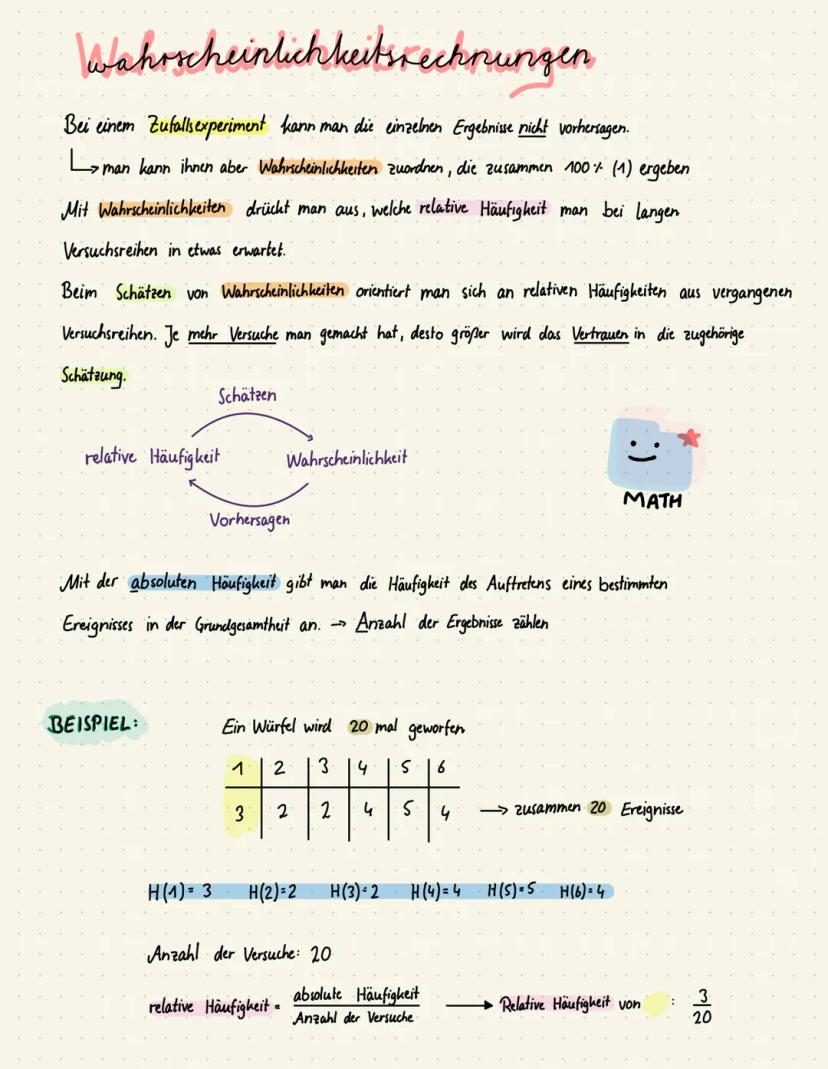 Wahrscheinlichkeitsrechnungen
Bei einem Zufallsexperiment kann man die einzelnen Ergebnisse nicht vorhersagen.
↳ man kann ihnen aber Wahrscheinlichkeiten zuordnen, die zusammen 100% (1) ergeben
Mit Wahrscheinlichkeiten drückt man aus, welche relative Häufigkeit man bei langen
Versuchsreihen in etwas erwartet.
Beim Schätzen von Wahrscheinlichkeiten orientiert man sich an relativen Häufigkeiten aus vergangenen
Versuchsreihen. Je mehr Versuche man gemacht hat, desto größer wird das Vertrauen in die zugehörige
Schätzung.
Schätzen
relative Häufigkeit Wahrscheinlichkeit
Vorhersagen
MATH
Mit der absoluten Häufigkeit gibt man die Häufigkeit des Auftretens eines bestimmten
Ereignisses in der Grundgesamtheit an. → Anzahl der Ergebnisse zählen
BEISPIEL: Ein Würfel wird 20 mal geworfen
1 2 3 4 5 6
3 2 2 4 5 4 → zusammen 20 Ereignisse
H(1)= 3 H(2)=2 H(3)=2 H(4)=4 H(5)=5 H(6)=4
Anzahl der Versuche: 20
relative Häufigkeit = absolute Häufigkeit / Anzahl der Versuche → Relative Häufigkeit von : 3/20